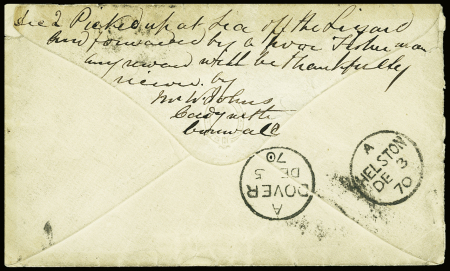 Dec 2 Picked up at Sea off the Lizard
and forwarded by a poor Fisherman
any reward will be thankfully
receved by
Mr W Johns
Cadgwith
Cornwall
A
HELSTON
DE 3
70
A
DOVER
DE 5
70